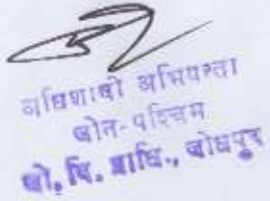 अधिशाषी अभियन्ता
जोन-पश्चिम
जो. वि. प्राधि., जोधपुर